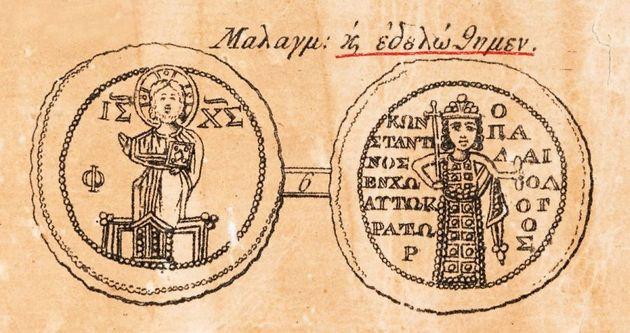 Μαλαγμ: κ̀ ἐδȣλώθημεν.
ΙΣ ΧΣ
Φ
6
ΚΩΝ
ΣΤΑΝΤΙ
ΝΟΣ
ΕΝΧΩ
ΑΥΤΟΚ
ΡΑΤΩ
Ρ
Ο
ΠΑ
Λ ΑΙ
ΟΛ
ΟΓ
ΟΣ